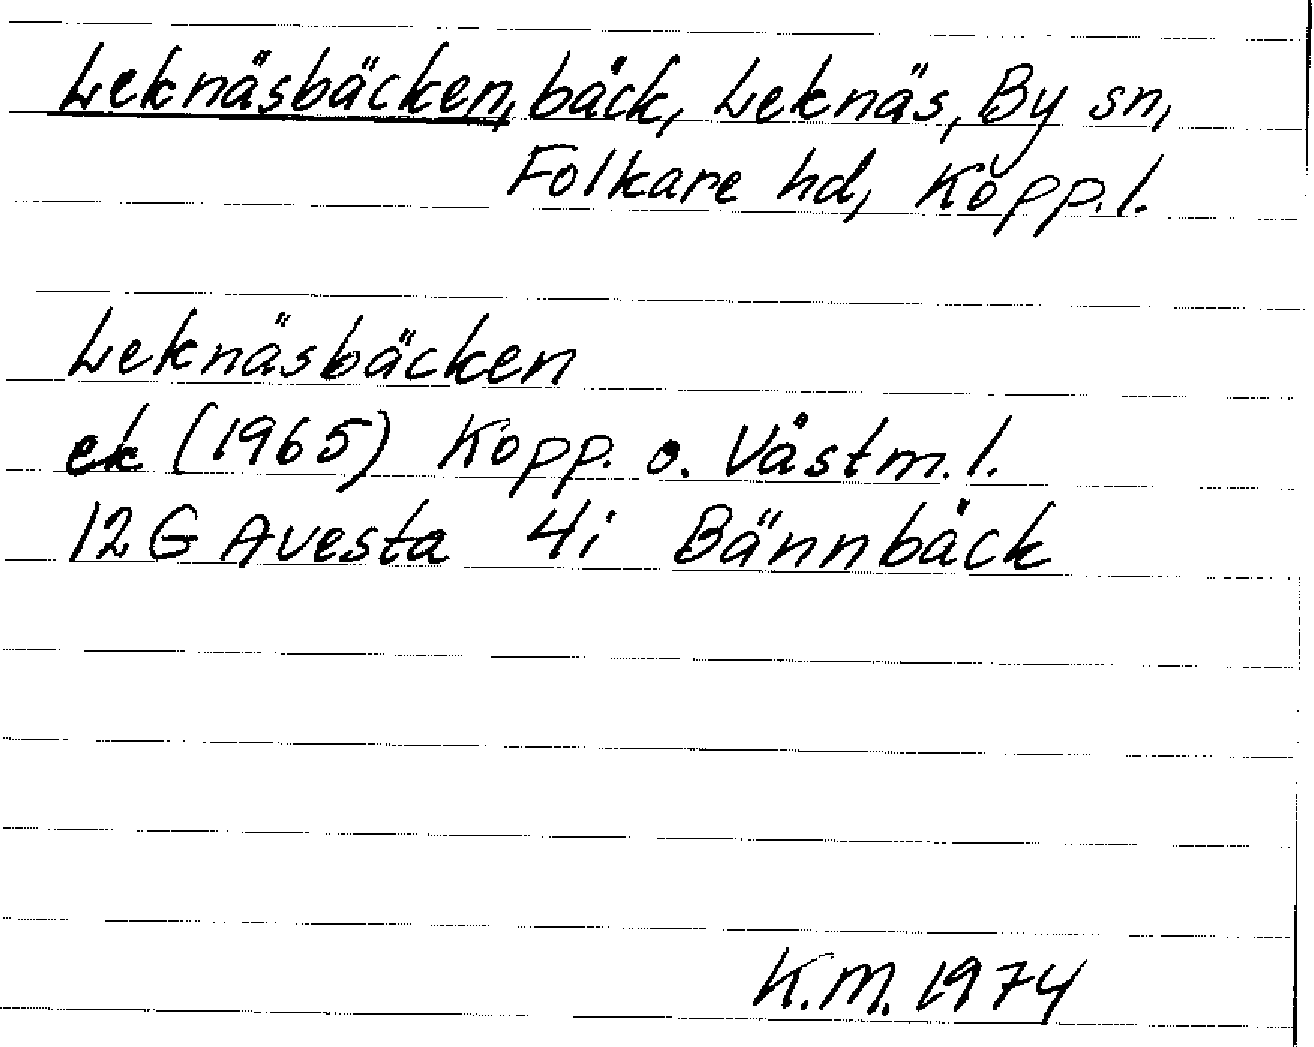 Leknäsbäcken, bäck, Leknäs, By sn,
Folkare hd, Kopp. l.
Leknäsbäcken
ek (1965) Kopp. o. Västm. l.
12 G Avesta 4i Bännbäck
K.M. 1974